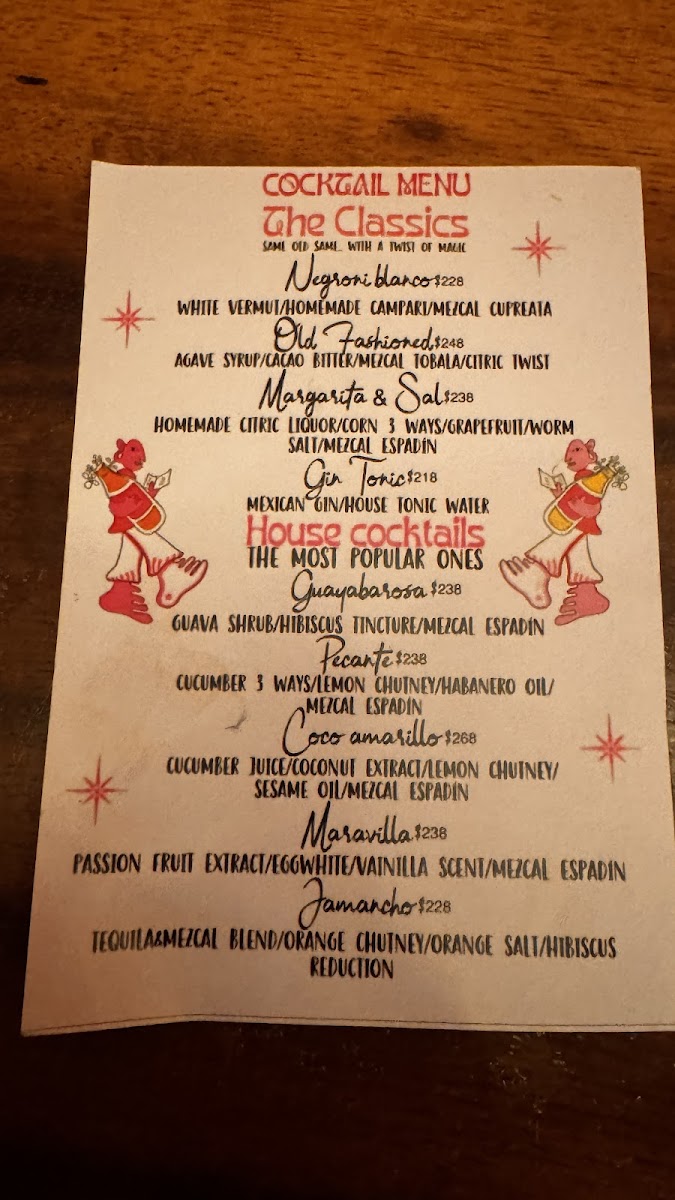 COCKTAIL MENU
The Classics
SAME OLD SAME... WITH A TWIST OF MAGIC
Negroni blanco $228
WHITE VERMUT/HOMEMADE CAMPARI/MEZCAL CUPREATA
Old Fashioned $248
AGAVE SYRUP/CACAO BITTER/MEZCAL TOBALA/CITRIC TWIST
Margarita & Sal $238
HOMEMADE CITRIC LIQUOR/CORN 3 WAYS/GRAPEFRUIT/WORM
SALT/MEZCAL ESPADÍN
Gin Tonic $218
MEXICAN GIN/HOUSE TONIC WATER
House cocktails
THE MOST POPULAR ONES
Guayabarosa $238
GUAVA SHRUB/HIBISCUS TINCTURE/MEZCAL ESPADÍN
Pecante $238
CUCUMBER 3 WAYS/LEMON CHUTNEY/HABANERO OIL/
MEZCAL ESPADÍN
Coco amarillo $268
CUCUMBER JUICE/COCONUT EXTRACT/LEMON CHUTNEY/
SESAME OIL/MEZCAL ESPADÍN
Maravilla $238
PASSION FRUIT EXTRACT/EGGWHITE/VAINILLA SCENT/MEZCAL ESPADÍN
Jamancho $228
TEQUILA&MEZCAL BLEND/ORANGE CHUTNEY/ORANGE SALT/HIBISCUS
REDUCTION